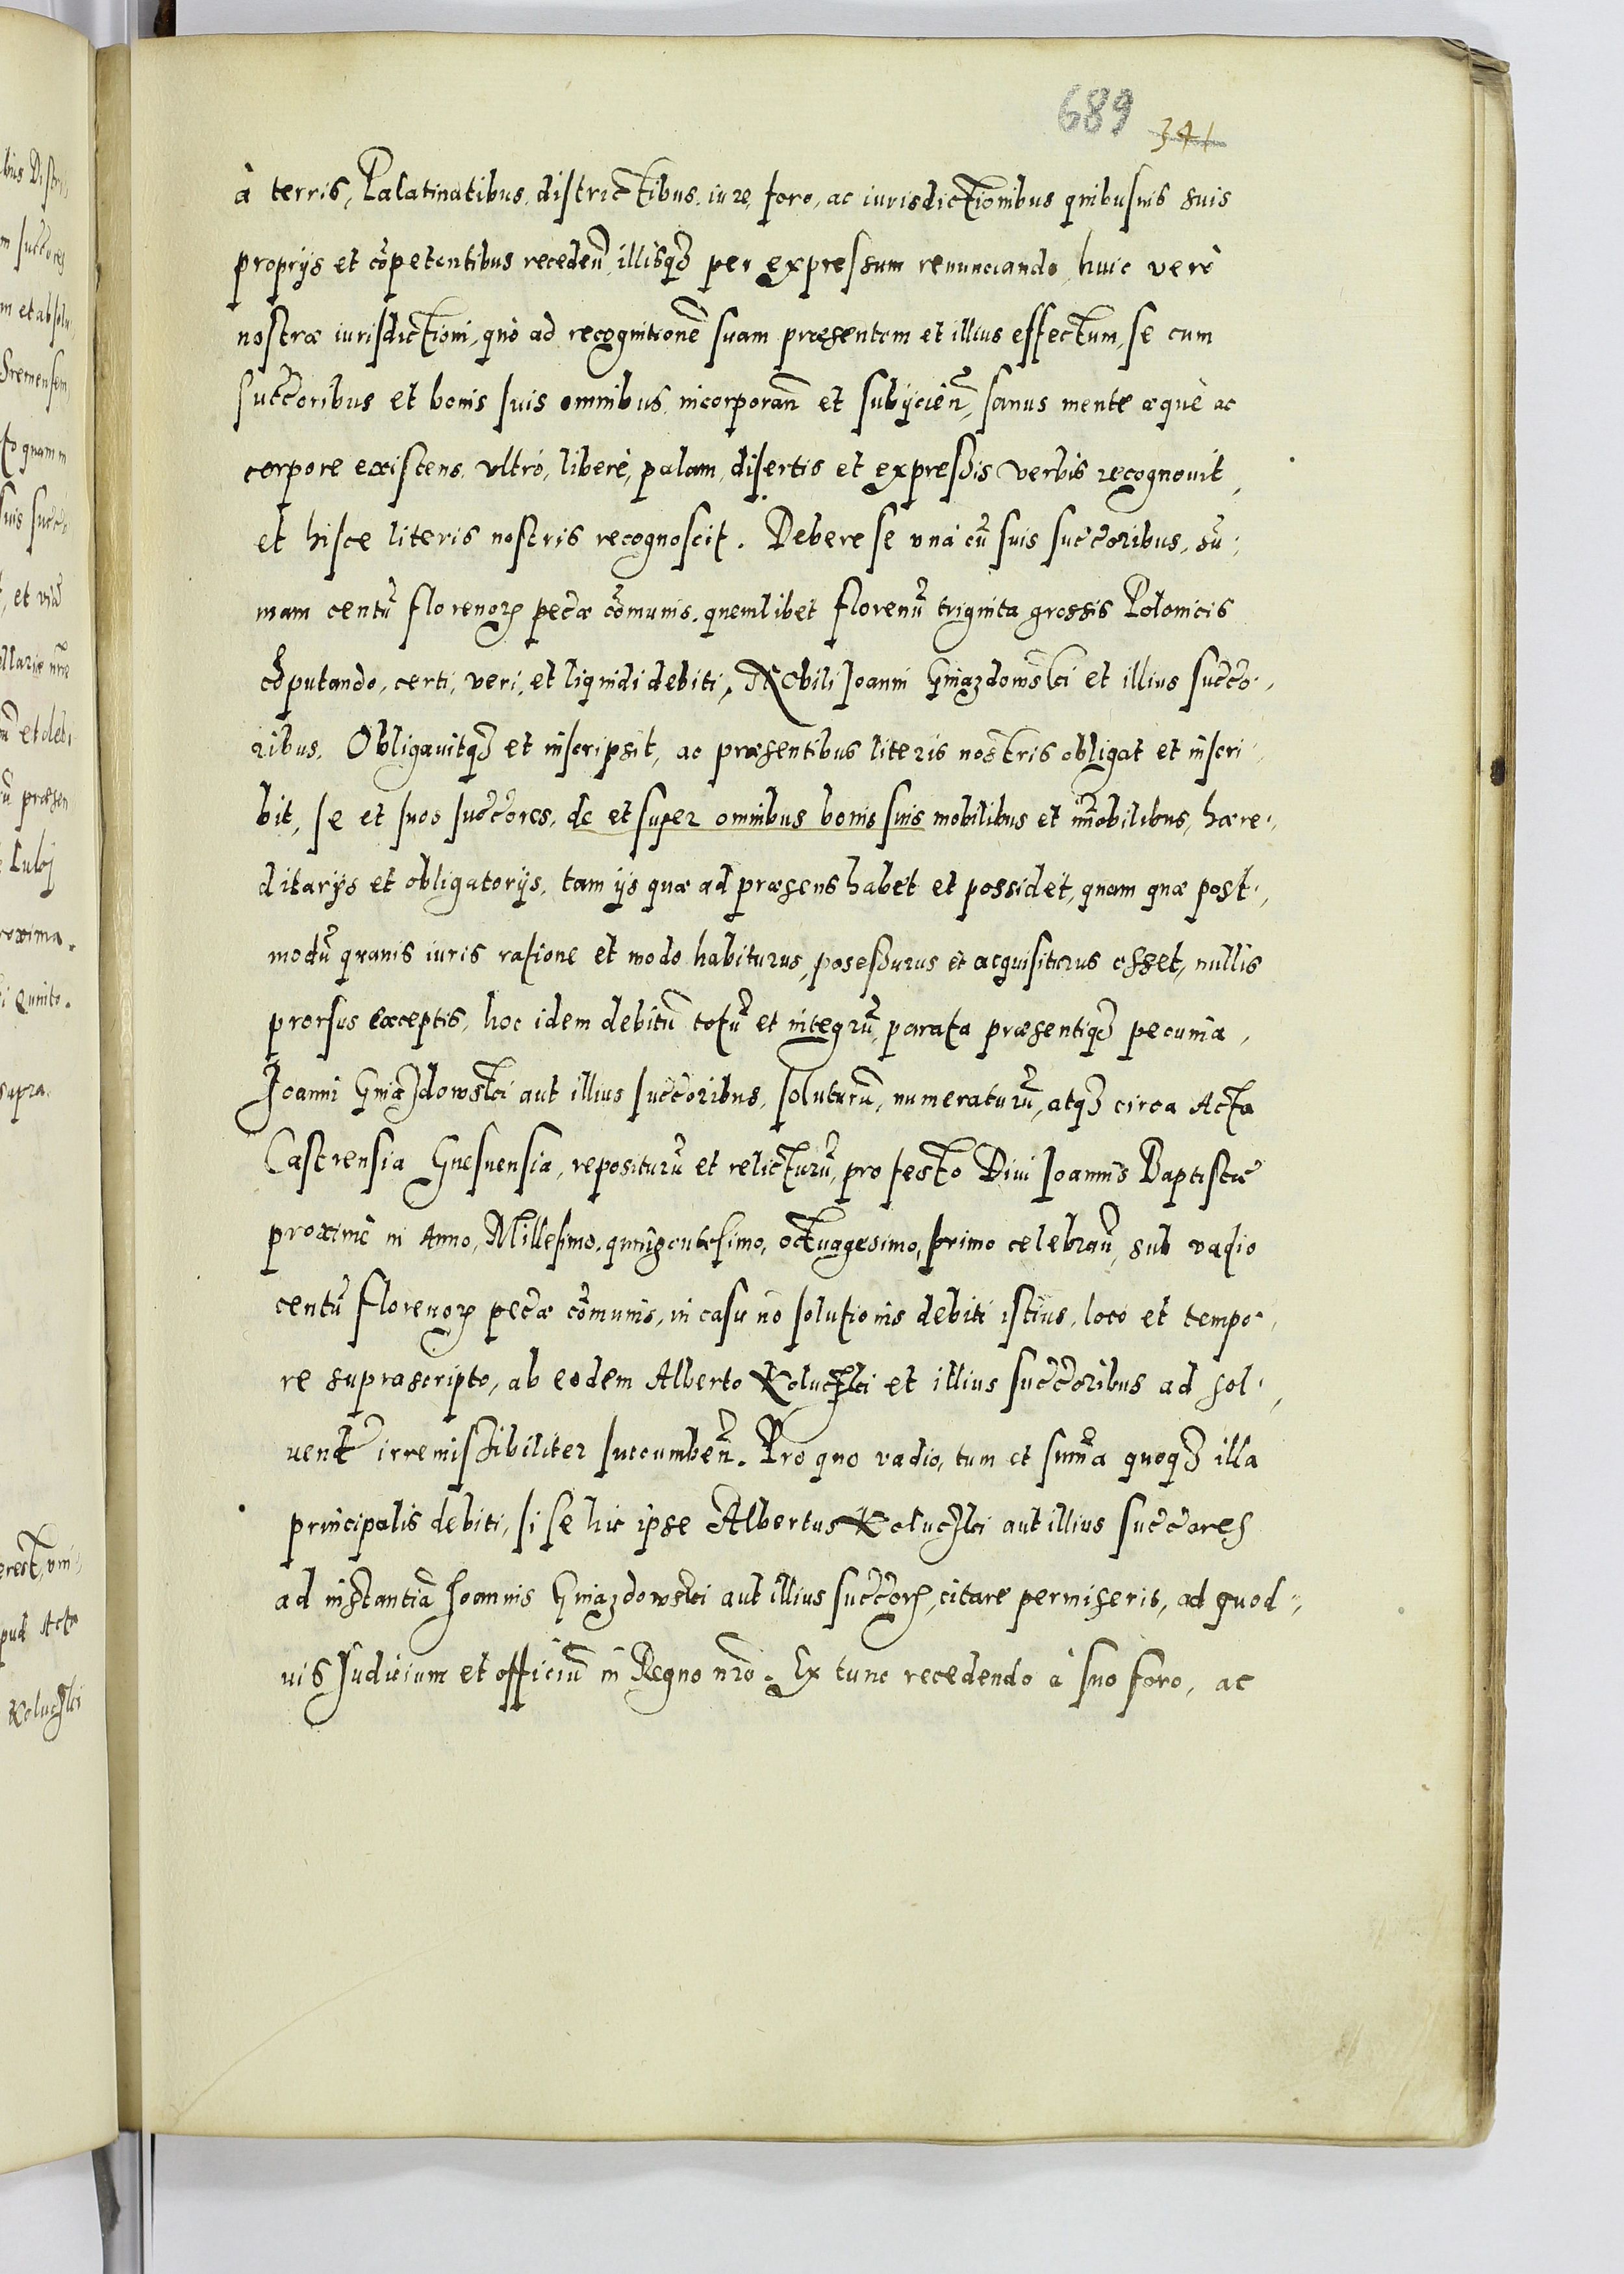 689 341
à terris, Palatinatibus, districtibus, iure, foro, ac iurisdictionibus quibusuis suis
proprijs et cõpetentibus receden̄, illisq3 per expressum renunciando, huic verò
nostræ iurisdictioni, quò ad recognitionẽ suam præsentem et illius effectum, se cum
succoribus et bonis suis omnibus, incorporañ et subijcieñ, sanus mente æquè ac
corpore existens, vltrò, liberè, palam, disertis et expreßis verbis recognouit,
et hisce literis nostris recognoscit. Debere se vnà cũ suis succoribus, sũ,,
mam centũ florenoꝝ pecæ cõmunis, quemlibet florenũ triginta grossis Polonicis
cõputando, certi, veri, et liquidi debiti, Nobili Joanni Gniazdowski et illius succo,,
ribus. Obligauitq3 et inscripsit, ac præsentibus literis nostris obligat et inscri,,
bit, se et suos succores, de et super omnibus bonis suis mobilibus et im̃obilibus, hære,,
ditarijs et obligatorijs, tam ijs quæ ad præsens habet et possidet, quam quæ post,,
modũ quauis iuris ratione et modo habiturus, poseßurus et acquisiturus esset, nullis
prorsus exceptis, hoc idem debitũ totũ et integrũ, parata præsentiq3 pecunia,
Joanni Gniazdowski aut illius succoribus, soluturũ, numeraturũ, atq3 circa Acta
Castrensia Gnesnensia, repositurũ et relicturũ, pro festo Diui Joannis Baptistæ
proximè in Anno, Millesimo, quingentesimo, octuagesimo, primo celebrañ, sub vadio
centũ florenoꝝ pecæ cõmunis, in casu nõ solutionis debiti istius, loco et tempo,,
re suprascripto, ab eodem Alberto Kolucski et illius succoribus ad sol,,
uend̃ irremißibiliter succumbeñ. Pro quo vadio, tum et sum̃a quoq3 illa
principalis debiti, si se hic ipse Albertus Kolucski aut illius succores
ad instantiã Joannis Gniazdowski aut illius succoꝝ, citare permiserit, ad quod,,
uis Judicium et officiũ in Regno nr̃o. Ex tunc recedendo à suo foro, ac